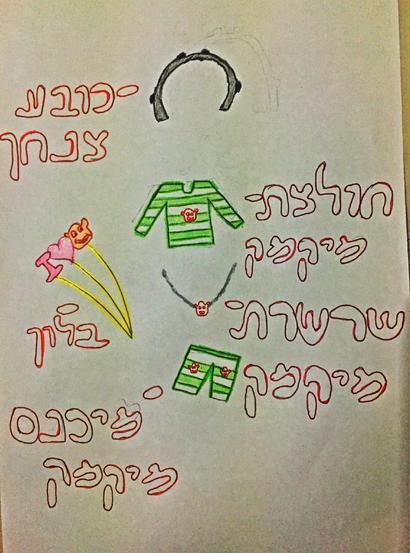 -כובע
צנחן
חולצת-
מיקמק
I
בלון
שרשרת-
מיקמק
-מיכנס
מיקמק